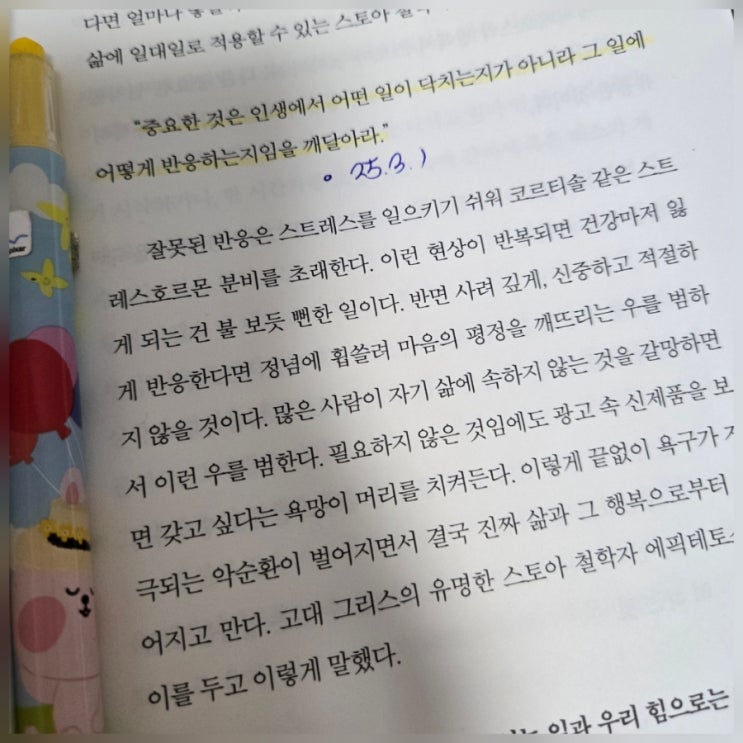 다면 얼마나
삶에 일대일로 적용할 수 있는 스토아 철학
"중요한 것은 인생에서 어떤 일이 닥치는지가 아니라 그 일에
어떻게 반응하는지임을 깨달아라."
25.3.1
잘못된 반응은 스트레스를 일으키기 쉬워 코르티솔 같은 스트
레스호르몬 분비를 초래한다. 이런 현상이 반복되면 건강마저 잃
게 되는 건 불 보듯 뻔한 일이다. 반면 사려 깊게, 신중하고 적절하
게 반응한다면 정념에 휩쓸려 마음의 평정을 깨뜨리는 우를 범하
지 않을 것이다. 많은 사람이 자기 삶에 속하지 않는 것을 갈망하면
서 이런 우를 범한다. 필요하지 않은 것임에도 광고 속 신제품을 보
면 갖고 싶다는 욕망이 머리를 치켜든다. 이렇게 끝없이 욕구가
극되는 악순환이 벌어지면서 결국 진짜 삶과 그 행복으로부터
어지고 만다. 고대 그리스의 유명한 스토아 철학자 에픽테토
이를 두고 이렇게 말했다.
일과 우리 힘으로는